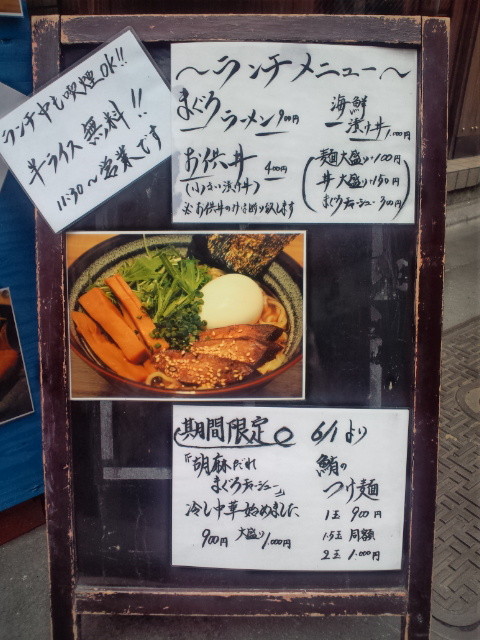 ランチ中も喫煙OK!!
半ライス無料!!
11:30〜営業です
〜ランチメニュー〜
まぐろラーメン 900円
海鮮漬け丼 1,000円
お供丼 400円
麺大盛り・100円
丼大盛り・150円
まぐろチャーシュー 300円
期間限定
『胡麻だれ
まぐろチャーシュー』
冷し中華始めました
900円 大盛り1,000円
6/1より
鮪の
つけ麺
1玉 900円
1.5玉 同額
2玉 1,000円